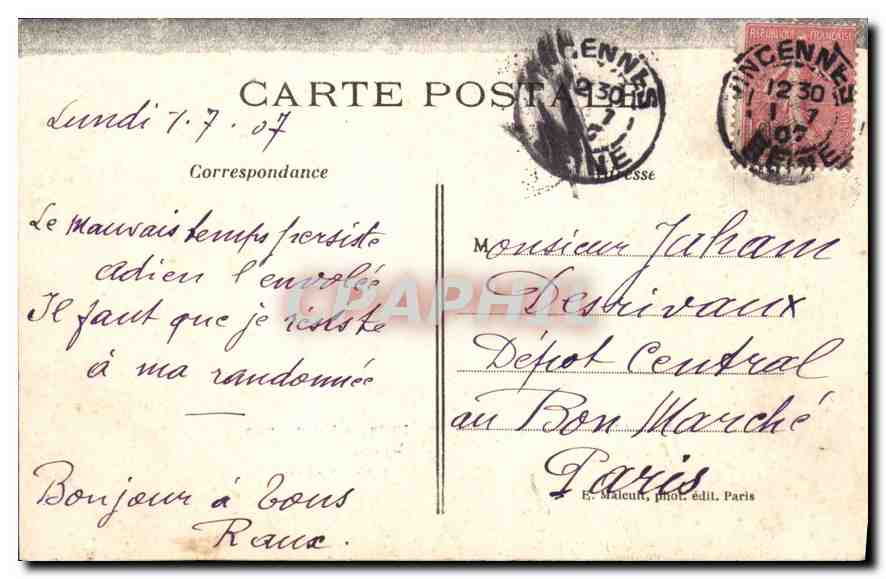 CARTE POSTALE
Lundi 1.7.07
Correspondance
Adresse
Le Mauvais temps persiste
Adieu l'envolée
Il faut que je résiste
à ma randonnée
Bonjour à tous
Raux.
Monsieur Jaham
Desrivaux
Dépot Central
au Bon Marché
Paris
E. Malcuit, phot. édit. Paris
VINCENNES
12 30
1 7
07
SEINE
REPUBLIQUE FRANÇAISE
VINCENNES
12 30
7
CPAPHIL